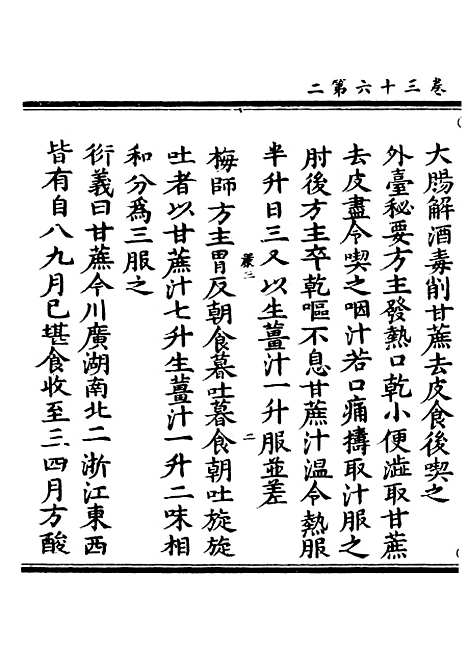 卷三十六第二
大腸解酒毒削甘蔗去皮食後喫之
外臺秘要方主發熱口乾小便澁取甘蔗
去皮盡令喫之咽汁若口痛擣取汁服之
肘後方主卒乾嘔不息甘蔗汁温令熱服
半升日三又以生薑汁一升服並差
梅師方主胃反朝食暮吐暮食朝吐旋旋
吐者以甘蔗汁七升生薑汁一升二味相
和分爲三服之
衍義曰甘蔗今川廣湖南北二浙江東西
皆有自八九月已堪食收至三四月方酸
二